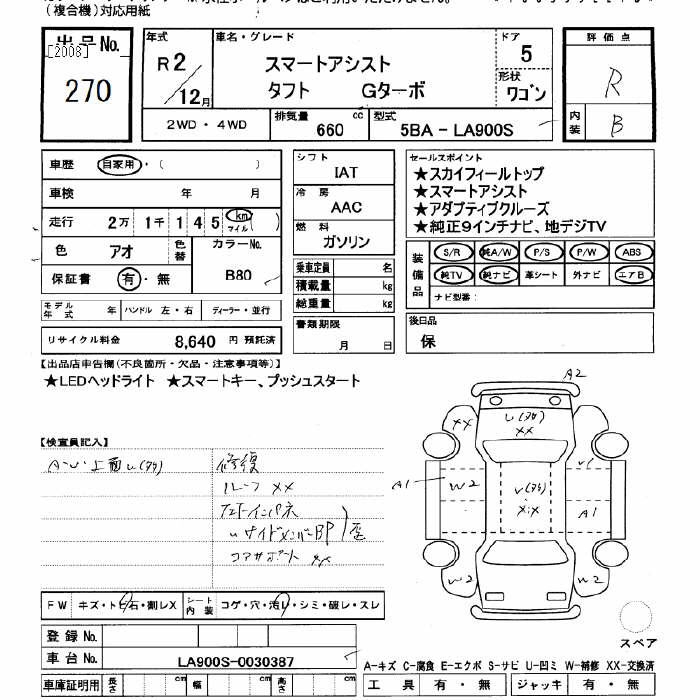 (複合機)対応用紙
出品No.
[2008]
270
年式
R2/12月
車名・グレード
スマートアシスト
タフト Gターボ
ドア
5
形状
ワゴン
評価点
R
内装
B
2WD・4WD
排気量 660 cc
型式 5BA - LA900S
車歴 自家用・( )
車検 年 月
走行 2万 1千 1 4 5 km マイル ( )
色 アオ
色替
カラーNo.
B80
保証書 有・無
モデル年式 年 ハンドル 左・右 ディーラー・並行
リサイクル料金 8,640 円 預託済
シフト
IAT
冷房
AAC
燃料
ガソリン
乗車定員 名
積載量 kg
総重量 kg
書類期限
月 日
セールスポイント
★スカイフィールトップ
★スマートアシスト
★アダプティブクルーズ
★純正9インチナビ、地デジTV
装備品
S/R 純A/W P/S P/W ABS
純TV 純ナビ 革シート 外ナビ エアB
ナビ型番:
後日品
保
【出品店申告欄(不良箇所・欠品・注意事項等)】
★LEDヘッドライト ★スマートキー、プッシュスタート
【検査員記入】
修復
ルーフ XX
コアサポート XX
A2
XX
U(タタ)
XX
A1
W2
U(タタ)
XX
A1
W2
FW キズ・トビ石・割レX
シート内装 コゲ・穴・汚レ・シミ・破レ・スレ
スペア
登録No.
車台No. LA900S-0030387
A-キズ C-腐食 E-エクボ S-サビ U-凹ミ W-補修 XX-交換済
車庫証明用 長さ cm 幅 cm 高さ cm
工具 有・無 ジャッキ 有・無